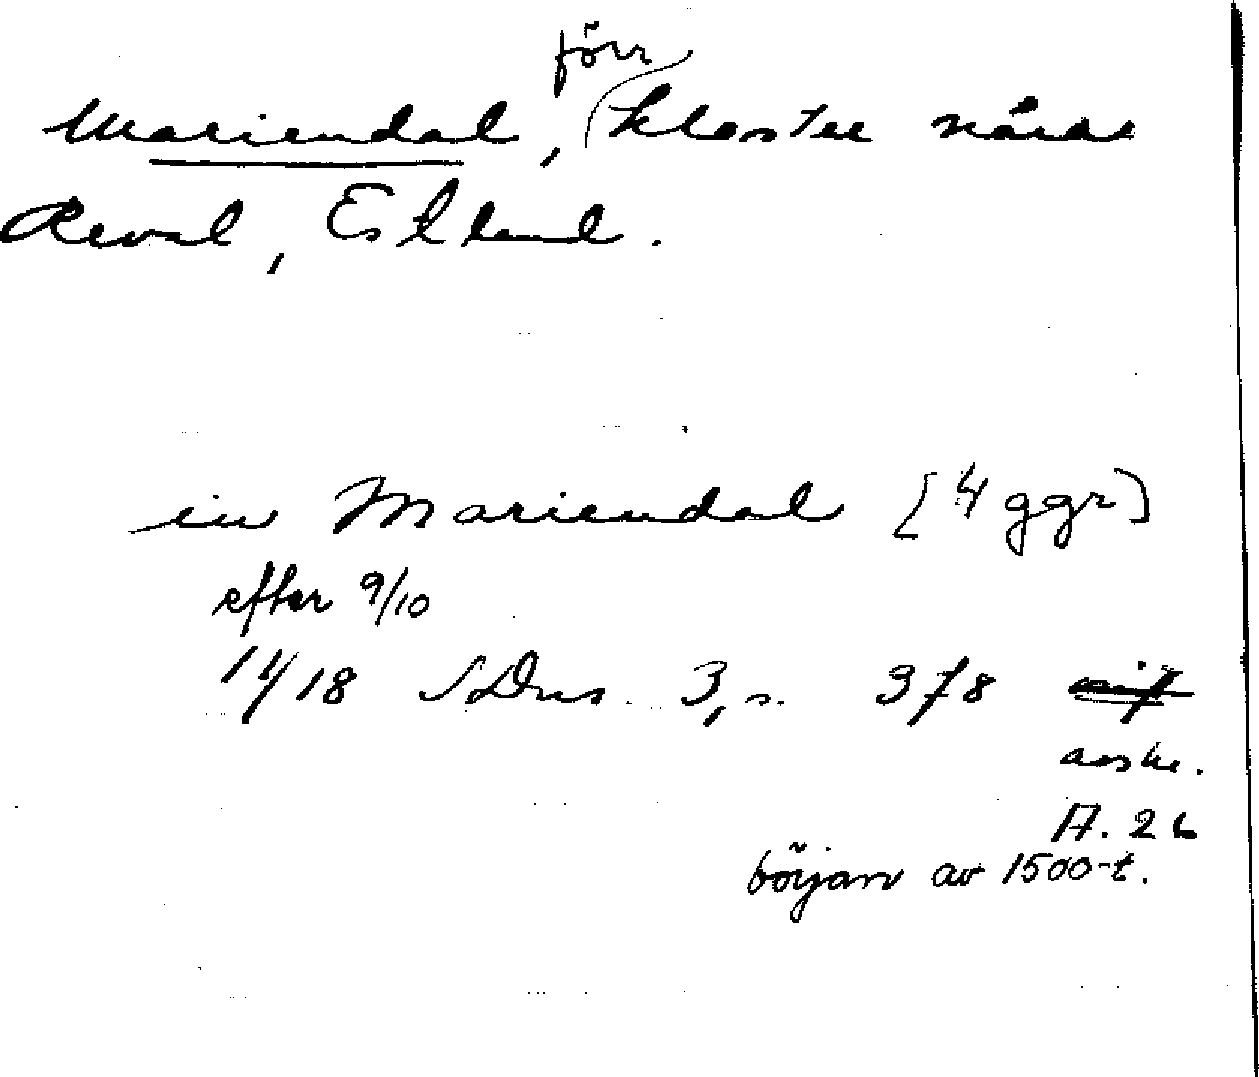 förr
Mariendal, kloster nära
Reval, Estland.
in Mariendal [4 ggr]
efter 9/10
14/18 SDns. 3, s. 378
avskr.
A. 26
början av 1500-t.